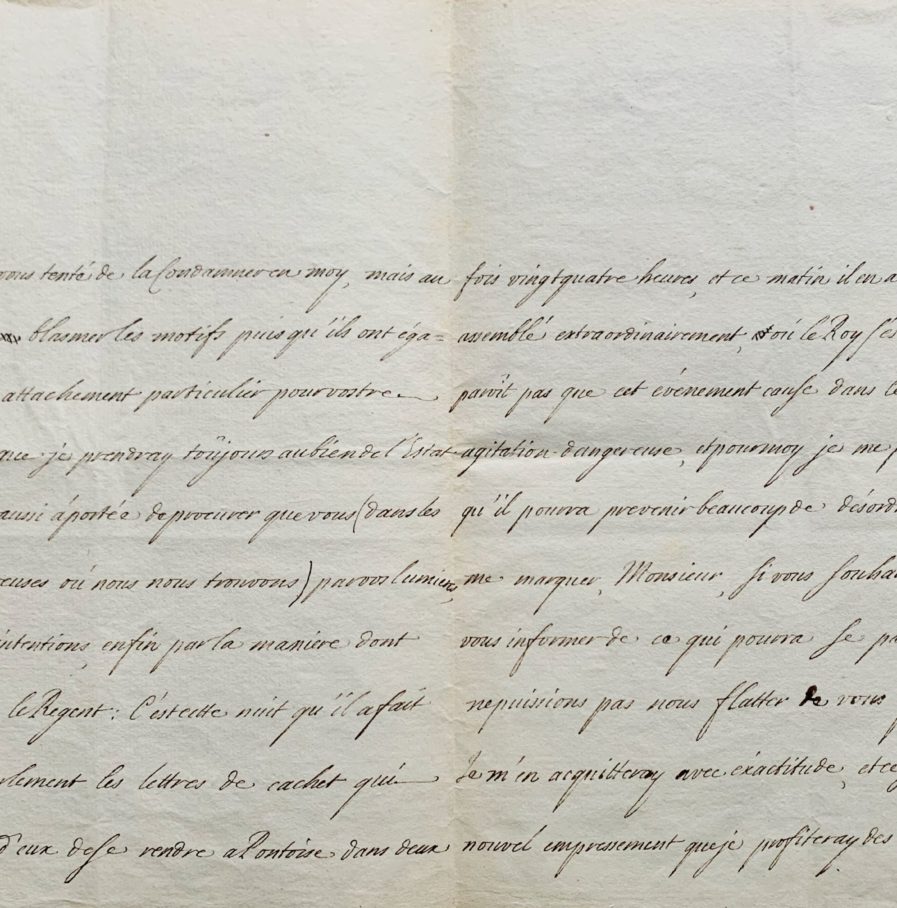 vous tenté de la Condamner en moy, mais au
blasmer les motifs puis qu'ils ont éga=
attachement particulier pour vostre
que je prendray toûjours au bien de l'Estat
aussi á portée de procurer que vous (dans les
euses où nous nous trouvons) par vos lumieres,
intentions, enfin par la maniere dont
le Régent: C'est cette nuit qu'il a fait
rlement les lettres de cachet qui
d'eux de se rendre a Pontoise dans deux
fois vingt quatre heures, et ce matin il en a
assemblé extraordinairement, où le Roy s'és
paroît pas que cet événement cause dans le
agitation dangereuse, et pour moy je me p
qu'il pourra prevenir beaucoup de désord
me marquer, Monsieur, si vous souhai
vous informer de ce qui pourra se pa
ne puissions pas nous flatter de vous
Je m'en acquitteray avec éxactitude, et ce
nouvel empressement que je profiteray des